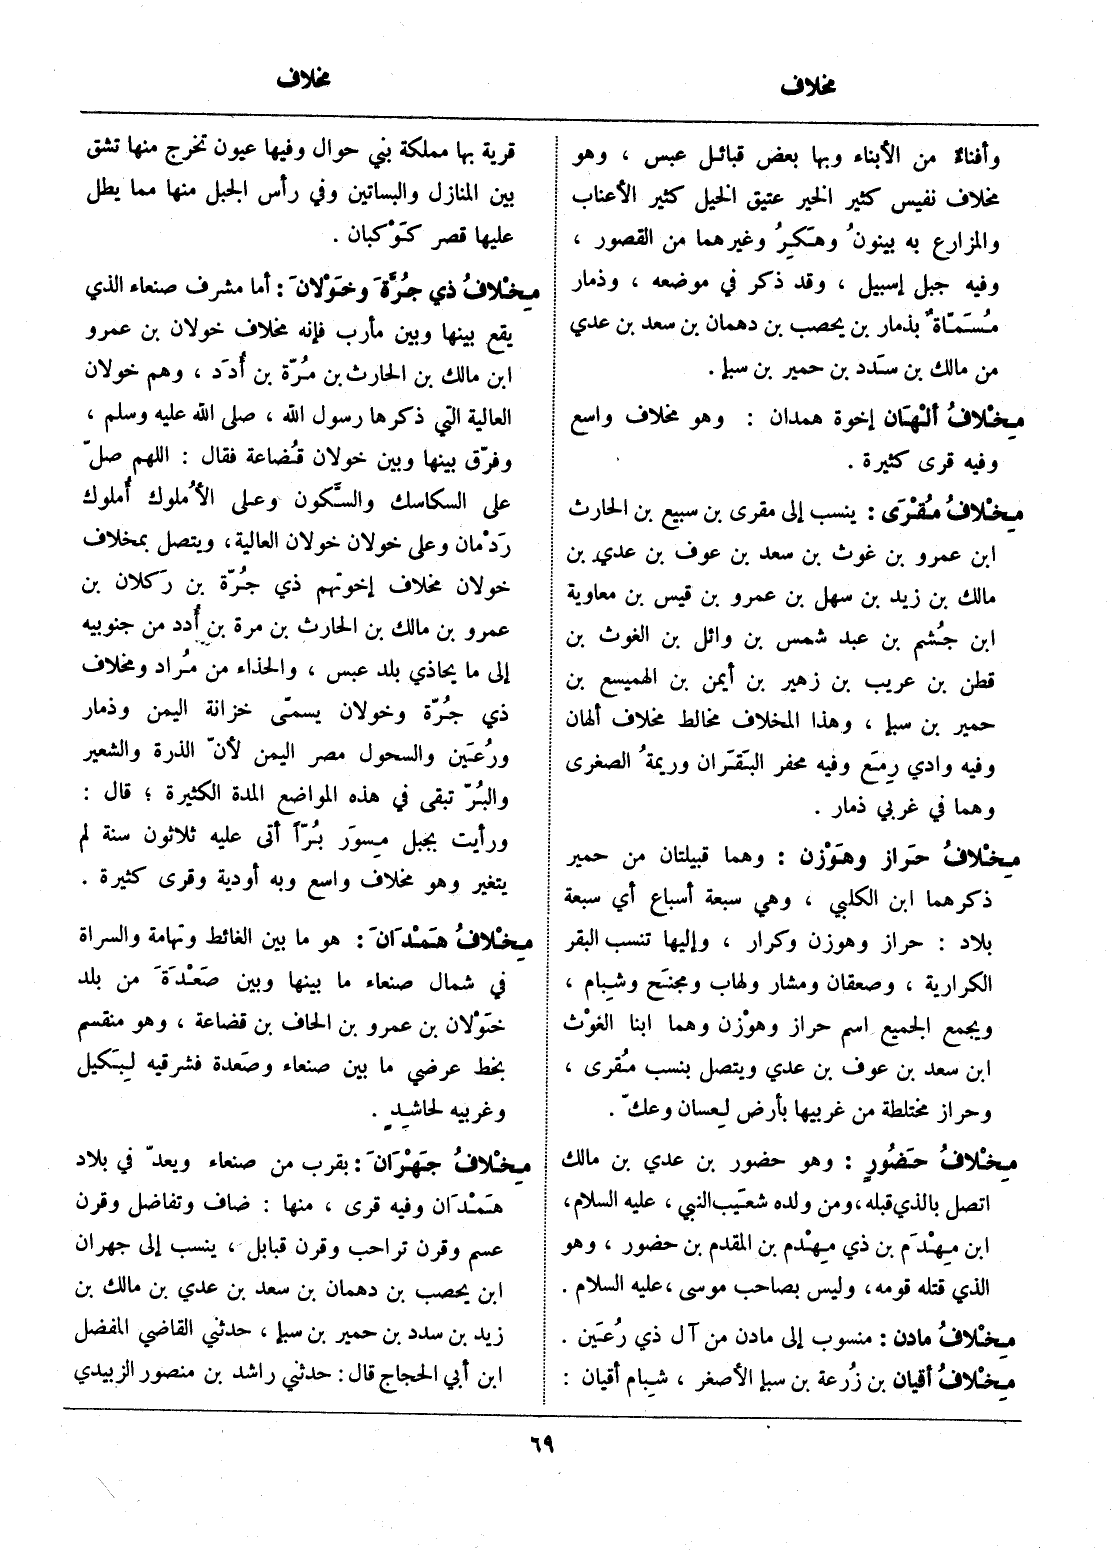 مخلاف
مخلاف
وأفناءُ من الأبناء وبها بعض قبائل عبس ، وهو
مخلاف نفيس كثير الخير عتيق الخيل كثير الأعناب
والمزارع به بينونُ وهَكِرُ وغيرهما من القصور ،
وفيه جبل إسبيل ، وقد ذكر في موضعه ، وذمار
مُسَمّاةٌ بذمار بن يحصب بن دهمان بن سعد بن عدي
من مالك بن سَدد بن حمير بن سبإ .
مِخْلافُ ألْهَان إخوة همدان : وهو مخلاف واسع
وفيه قرى كثيرة .
مِخْلافُ مُقْرَى : ينسب إلى مقرى بن سبيع بن الحارث
ابن عمرو بن غوث بن سعد بن عوف بن عدي بن
مالك بن زيد بن سهل بن عمرو بن قيس بن معاوية
ابن جُشم بن عبد شمس بن وائل بن الغوث بن
قطن بن عريب بن زهير بن أيمن بن الهميسع بن
حمير بن سبإ ، وهذا المخلاف مخالط مخلاف ألهان
وفيه وادي رِمَع وفيه محفر البَقَران وريمةُ الصغرى
وهما في غربي ذمار .
مِخْلافُ حَراز وهَوْزن : وهما قبيلتان من حمير
ذكرهما ابن الكلبي ، وهي سبعة أسباع أي سبعة
بلاد : حراز وهوزن وكرار ، وإليها تنسب البقر
الكرارية ، وصعقان ومشار ولهاب ومجنَح وشِبام ،
ويجمع الجميع اسم حراز وهوْزن وهما ابنا الغوْث
ابن سعد بن عوف بن عدي ويتصل بنسب مُقرى ،
وحراز مختلطة من غربيها بأرض لِعسان وعكّ .
مِخْلافُ حَضُورٍ : وهو حضور بن عدي بن مالك
اتصل بالذي قبله، ومن ولده شعَيب النبي ، عليه السلام،
ابن مِهْدَم بن ذي مِهْدم بن المقدم بن حضور ، وهو
الذي قتله قومه، وليس بصاحب موسى ، عليه السلام .
مِخْلافُ مادن : منسوب إلى مادن من آل ذي رُعَين .
مِخْلافُ أقيان بن زُرعة بن سبإ الأصغر ، شِبام أقيان :
قرية بها مملكة بني حوال وفيها عيون تخرج منها تشق
بين المنازل والبساتين وفي رأس الجبل منها مما يطل
عليها قصر كَوْكبان .
مِخْلافُ ذي جُرَّةَ وخَوْلانَ : أما مشرف صنعاء الذي
يقع بينها وبين مأرب فإنه مخلاف خولان بن عمرو
ابن مالك بن الحارث بن مُرّة بن أُدَد ، وهم خولان
العالية التي ذكرها رسول الله ، صلى الله عليه وسلم ،
وفرّق بينها وبين خولان قُضاعة فقال : اللهم صلّ
على السكاسك والسَّكون وعلى الأُملوك أُملوك
رَدْمان وعلى خولان خولان العالية، ويتصل بمخلاف
خولان مخلاف إخوتهم ذي جُرّة بن رَكلان بن
عمرو بن مالك بن الحارث بن مرة بن أُدد من جنوبيه
إلى ما يحاذي بلد عبس ، والحذاء من مُراد ومخلاف
ذي جُرّة وخولان يسمّى خزانة اليمن وذمار
ورُعَين والسحول مصر اليمن لأنّ الذرة والشعير
والبُرّ تبقى في هذه المواضع المدة الكثيرة ؛ قال :
ورأيت بجبل مِسوَر بُرّاً أتى عليه ثلاثون سنة لم
يتغير وهو مخلاف واسع وبه أودية وقرى كثيرة .
مِخْلافُ هَمْدَانَ : هو ما بين الغائط وتهامة والسراة
في شمال صنعاء ما بينها وبين صَعْدَةَ من بلد
خَوْلان بن عمرو بن الحاف بن قضاعة ، وهو منقسم
بخط عرضي ما بين صنعاء وصَعدة فشرقيه لِبَكيل
وغربيه لحاشِدٍ .
مِخْلافُ جَهْرَانَ : بقرب من صنعاء ويعدّ في بلاد
هَمْدَان وفيه قرى ، منها : ضاف وتفاضل وقرن
عسم وقرن تراحب وقرن قباتل ، ينسب إلى جهران
ابن يحصب بن دهمان بن سعد بن عدي بن مالك بن
زيد بن سدد بن حمير بن سبإ ، حدثني القاضي المفضل
ابن أبي الحجاج قال : حدثني راشد بن منصور الزبيدي
٦٩